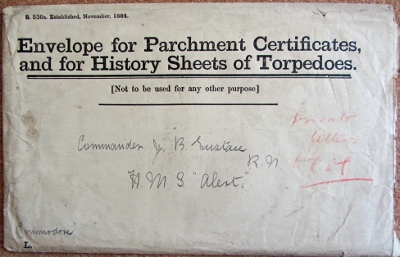 S. 536a. Established, November, 1884.
Envelope for Parchment Certificates,
and for History Sheets of Torpedoes.
[Not to be used for any other purpose]
Commander J. B Eustace
R.N
H.M.S "Alert."
Private
letters
"Commodore"
L.